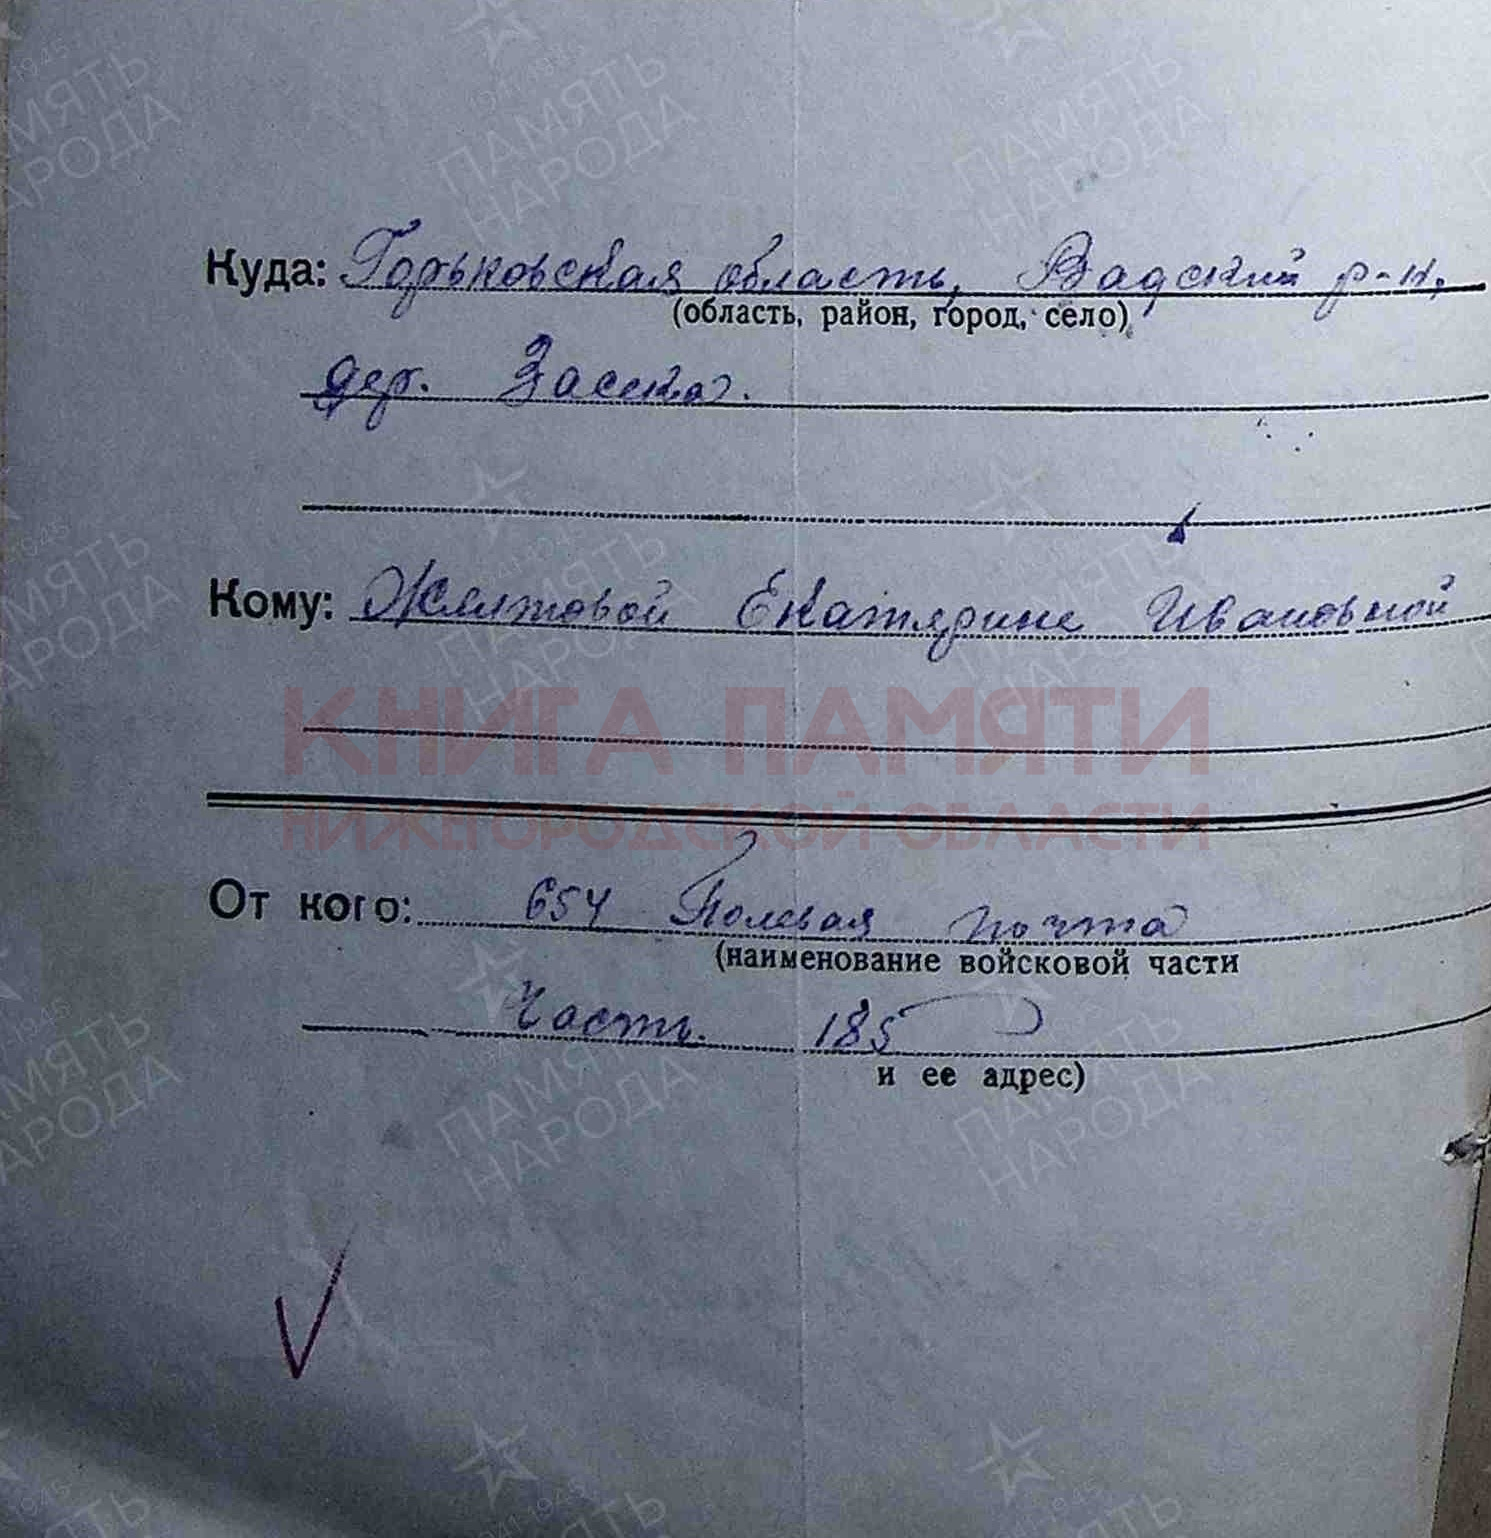 Куда: Горьковская область, Вадский р-н,
(область, район, город, село)
дер. Засека.
Кому: Желтовой Екатерине Ивановной
КНИГА ПАМЯТИ
НИЖЕГОРОДСКОЙ ОБЛАСТИ
От кого: 654 Полевая почта
(наименование войсковой части
Часть. 185
и ее адрес)
ПАМЯТЬ
НАРОДА